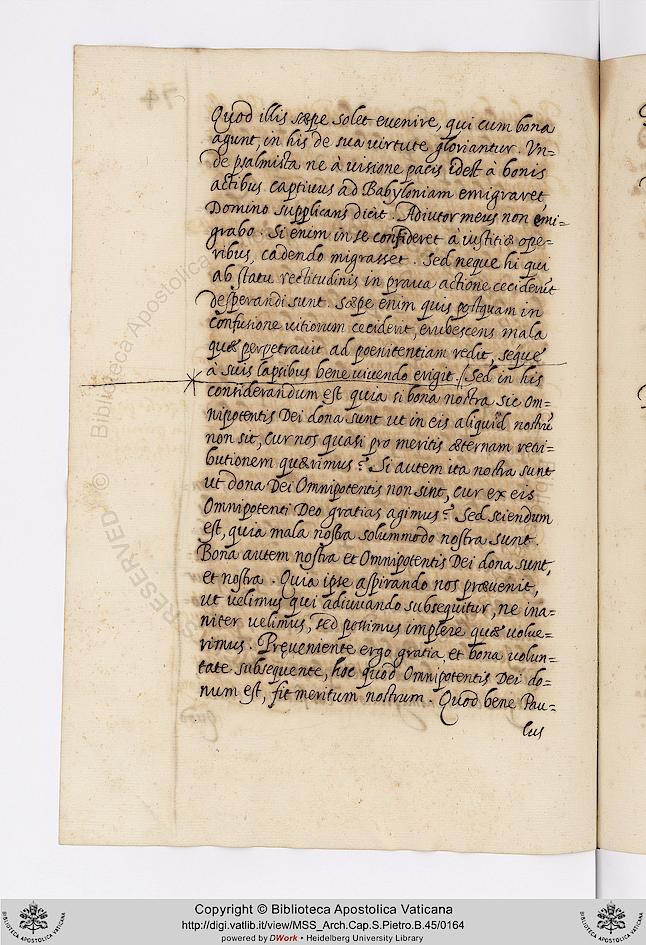 Quod illis sæpe solet evenire, qui cum bona
agunt, in his de sua virtute gloriantur. Vn=
de psalmista ne à visione pacis idest à bonis
actibus captivus ad Babyloniam emigraret,
Domino supplicans dicit. Adiutor meus non emi=
grabo. Si enim in se confideret à iustitiæ ope=
ribus, cadendo migrasset. Sed neque hi qui
ab statu rectitudinis in prava actione ceciderūt
desperandi sunt. Sæpe enim quis postquam in
confusione vitiorum ceciderit, erubescens mala
quæ perpetravit ad poenitentiam redit, seque
à suis lapsibus bene vivendo erigit. // Sed in his
considerandum est quia si bona nostra sic Om=
nipotentis Dei dona sunt ut in eis aliquid nostrū
non sit, cur nos quasi pro meritis æternam retri=
butionem quærimus? Si autem ita nostra sunt
ut dona Dei Omnipotentis non sint, cur ex eis
Omnipotenti Deo gratias agimus? Sed sciendum
est, quia mala nostra solummodo nostra sunt.
Bona autem nostra et Omnipotentis Dei dona sunt,
et nostra. Quia ipse aspirando nos prævenit,
ut velimus qui adiuvando subsequitur, ne ina=
niter velimus, sed possimus implere quæ volue=
rimus. Pręveniente ergo gratia, et bona volun=
tate subsequente, hoc quod Omnipotentis Dei do=
num est, fit meritum nostrum. Quod bene Pau=
lus
Biblioteca Apostolica Vaticana
©
RESERVED
Copyright © Biblioteca Apostolica Vaticana
http://digi.vatlib.it/view/MSS_Arch.Cap.S.Pietro.B.45/0164
powered by DWork • Heidelberg University Library